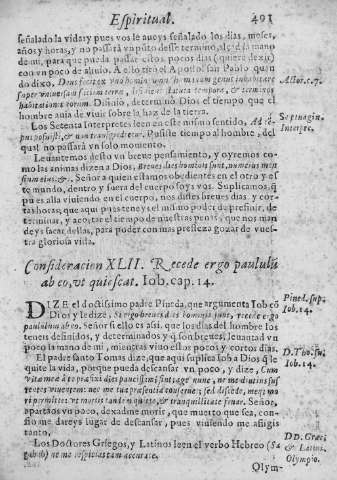 Espiritual. 491
señalado la vida, y pues vos le aueys señalado los dias, meses,
años, y horas, y no passarà un punto desse termino, alçad la mano
de mi, para que pueda passar estos pocos dias (quiero dezir)
con un poco de aliuio. A esto tirò el Apostol san Pablo quan
do dixo, Deus fecit ex uno homine genus inhabitare
super vniuersam faciem terræ, statuta tempora, & terminos
habitationis eorum. Disinio, determinò Dios el tiempo que el
hombre auia de viuir sobre la haz de la tierra.
Actor. c. 7.
Los Setenta Interpretes leen en este mismo sentido, Ad tẽ
pus posuisti, & non transgredietur. Pusiste tiempo al hombre, del
qual no passarà vn solo momento.
Septuagin.
Interpre.
Leuantemos desto vn breue pensamiento, y oyremos co-
mo las animas dizen a Dios, Breues dies hominis sunt, numerus men-
sium eius, &c. Señor a quien estamos obedientes en el otro y es
te mundo, dentro y fuera del cuerpo soys vos. Suplicamos, q̃
pues alla viuiendo en el cuerpo, nos distes breues dias, y cor-
tas horas, que aqui pues teneys el mismo poder de prefinir, de
terminar, y acortar el tiempo de nuestras penas, que nos man
deys sacar dellas, para poder con mas presteza gozar de vues-
tra gloriosa vida.
Consideracion XLII. Recede ergo paululũ
ab eo, vt quiescat. Iob. cap. 14.
DIZE el doctissimo padre Pineda, que argumenta Iob cõ
Dios y le dize, Si ergo breues dies hominis sunt, recede ergo
paululum ab eo. Señor si ello es assi, que los dias del hombre los
teneis definidos, y determinados y q̃ son breues, leuantad vn
poco la mano de mi, mientras viuo estos pocos y cortos dias.
Pined. sup.
Iob. 14.
El padre santo Tomas dize, que aqui suplica Iob a Dios q̃ le
quite la vida, porque pueda descansar vn poco, y dize, Cum
vita mea à te præfixi dies paucissimi sint, age nunc, ne me diutius sus
viuentem: nec me tua præsentia conserues; sed discede,
ri permittet vt mortis tandem quiete, & tranquillitate fruar. Señor,
apartaos vn poco, dexadme morir, que muerto que sea, con-
fio me dareys lugar de descansar, pues viuiendo me assigis
tanto.
D. Tho. su.
Iob. 14.
Los Doctores Griegos, y Latinos leen el verbo Hebreo (Sa
gabah) ne me respicias tam accurate.
DD. Græci
& Latini.
Olympio.
Olym-